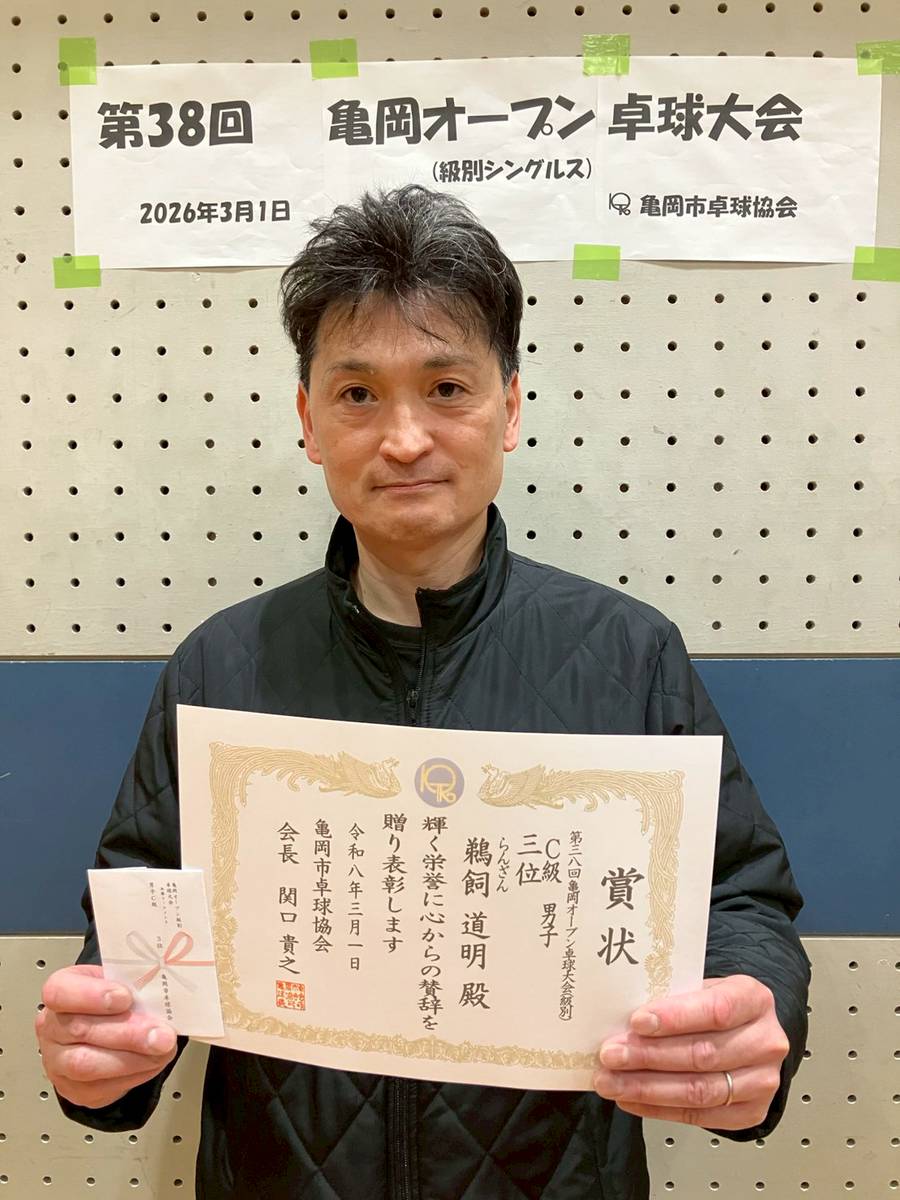 第38回 亀岡オープン 卓球大会
(級別シングルス)
2026年3月1日 亀岡市卓球協会
賞状
第三八回亀岡オープン卓球大会(級別)
C級 男子
三位
らんざん
鵜飼 道明 殿
輝く栄誉に心からの賛辞を
贈り表彰します
令和八年三月一日
亀岡市卓球協会
会長 関口 貴之
亀岡オープン級別
卓球大会
男子C級
3位
亀岡市卓球協会